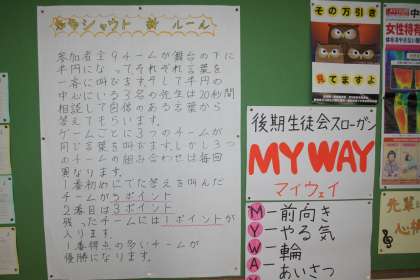 カラシャウト 新 ルール
参加者全9チームが舞台の下に
半円になってそれぞれ言葉を
一斉に叫びますそして半円の
中心にいる3名の先生は20秒間
相談して自信のある言葉から
答えてもらいます。
ゲームごとに3つのチームが
同じ言葉を叫びます。しかし3つ
のチームの組み合わせは毎回
異なります。
1番初めにでた答えを叫んだ
チームが5ポイント
2番目は3ポイント
残ったチームには1ポイントが
入ります。
1番得点の多いチームが
優勝になります。
その万引き
見てますよ
後期生徒会スローガン
MY WAY
マイウェイ
M-前向き
Y-やる気
W-輪
A-あいさつ
女性特有
先輩